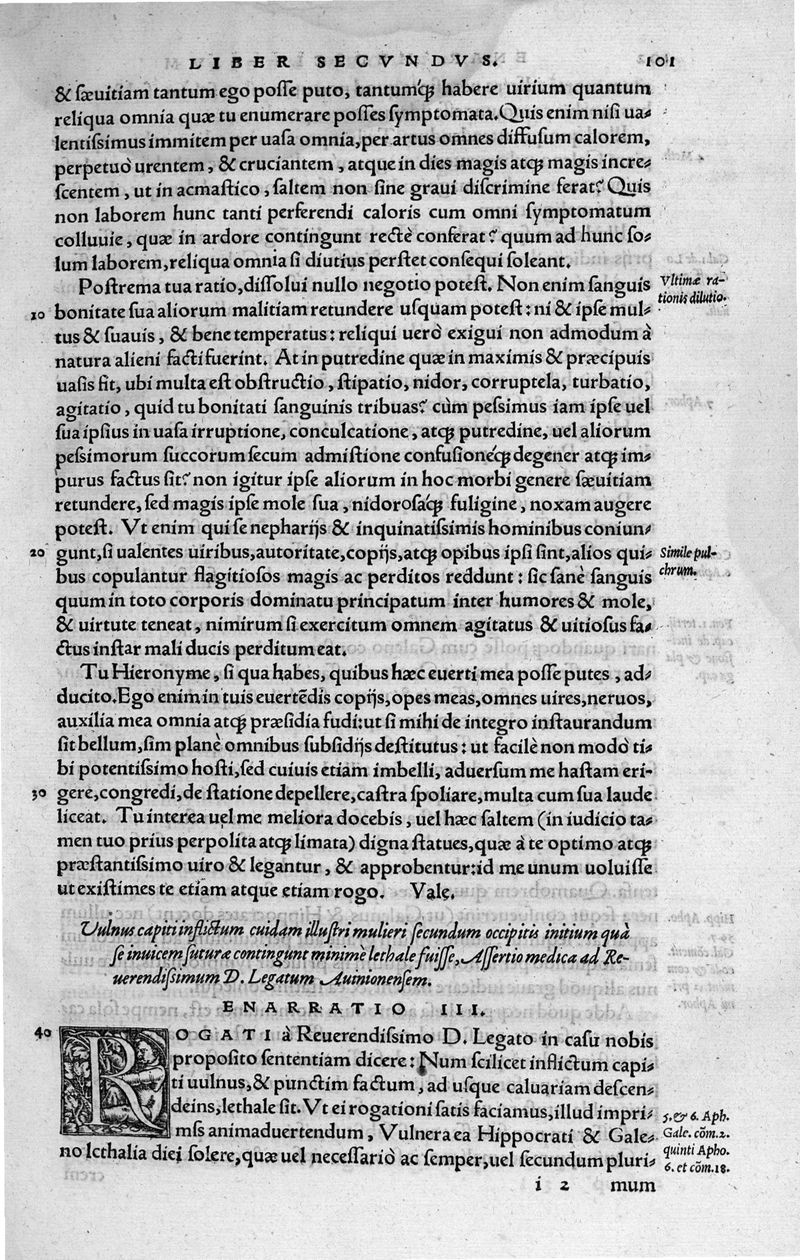 LIBER SECVNDVS. 101
& sæuitiam tantum ego posse puto, tantumq́; habere uirium quantum
reliqua omnia quæ tu enumerare posses symptomata. Quis enim nisi ua-
lentissimus immitem per uasa omnia, per artus omnes diffusum calorem,
perpetuò urentem, & cruciantem, atque in dies magis atq; magis incre-
scentem, ut in acmastico, saltem non sine graui discrimine ferat? Quis
non laborem hunc tanti perferendi caloris cum omni symptomatum
colluuie, quæ in ardore contingunt rectè conferat? quum ad hunc so-
lum laborem, reliqua omnia si diutius perstet consequi soleant.
Postrema tua ratio, dissolui nullo negotio potest. Non enim sanguis
Vltimæ ra-
tionis dilutio.
10 bonitate sua aliorum malitiam retundere usquam potest: ni & ipse mul-
tus & suauis, & bene temperatus: reliqui uerò exigui non admodum à
natura alieni facti fuerint. At in putredine quæ in maximis & præcipuis
uasis fit, ubi multa est obstructio, stipatio, nidor, corruptela, turbatio,
agitatio, quid tu bonitati sanguinis tribuas? cùm pessimus iam ipse uel
sua ipsius in uasa irruptione, conculcatione, atq; putredine, uel aliorum
pessimorum succorum secum admistione confusioneq́; degener atq; im-
purus factus sit? non igitur ipse aliorum in hoc morbi genere sæuitiam
retundere, sed magis ipse mole sua, nidorosaq́; fuligine, noxam augere
potest. Vt enim qui se nepharijs & inquinatissimis hominibus coniun-
20 gunt, si ualentes uiribus, autoritate, copijs, atq; opibus ipsi sint, alios qui-
Simile pul-
chrum.
bus copulantur flagitiosos magis ac perditos reddunt: sic sanè sanguis
quum in toto corporis dominatu principatum inter humores & mole,
& uirtute teneat, nimirum si exercitum omnem agitatus & uitiosus fa-
ctus instar mali ducis perditum eat.
Tu Hieronyme, si qua habes, quibus hæc euerti mea posse putes, ad-
ducito. Ego enim in tuis euertẽdis copijs, opes meas, omnes uires, neruos,
auxilia mea omnia atq; præsidia fudi: ut si mihi de integro instaurandum
sit bellum, sim planè omnibus subsidijs destitutus: ut facilè non modò ti-
bi potentissimo hosti, sed cuiuis etiam imbelli, aduersum me hastam eri-
30 gere, congredi, de statione depellere, castra spoliare, multa cum sua laude
liceat. Tu interea uel me meliora docebis, uel hæc saltem (in iudicio ta-
men tuo prius perpolita atq; limata) digna statues, quæ à te optimo atq;
præstantissimo uiro & legantur, & approbentur: id me unum uoluisse
ut existimes te etiam atque etiam rogo. Vale.
Vulnus capiti inflictum cuidam illustri mulieri secundum occipitis initium quà
se inuicem suturæ contingunt minimè lethale fuisse, Assertio medica ad Re-
uerendissimum D. Legatum Auinionensem.
ENARRATIO III.
40 ROGATI à Reuerendissimo D. Legato in casu nobis
proposito sententiam dicere: Num scilicet inflictum capi-
ti uulnus, & punctim factum, ad usque caluariam descen-
deins, lethale sit. Vt ei rogationi satis faciamus, illud impri-
mis animaduertendum, Vulnera ea Hippocrati & Gale-
no lethalia dici solere, quæ uel necessariò ac semper, uel secundum pluri-
5. & 6. Aph.
Gale. cõm. 2.
quinti Apho.
6. et cõm. 18.
i 2 mum